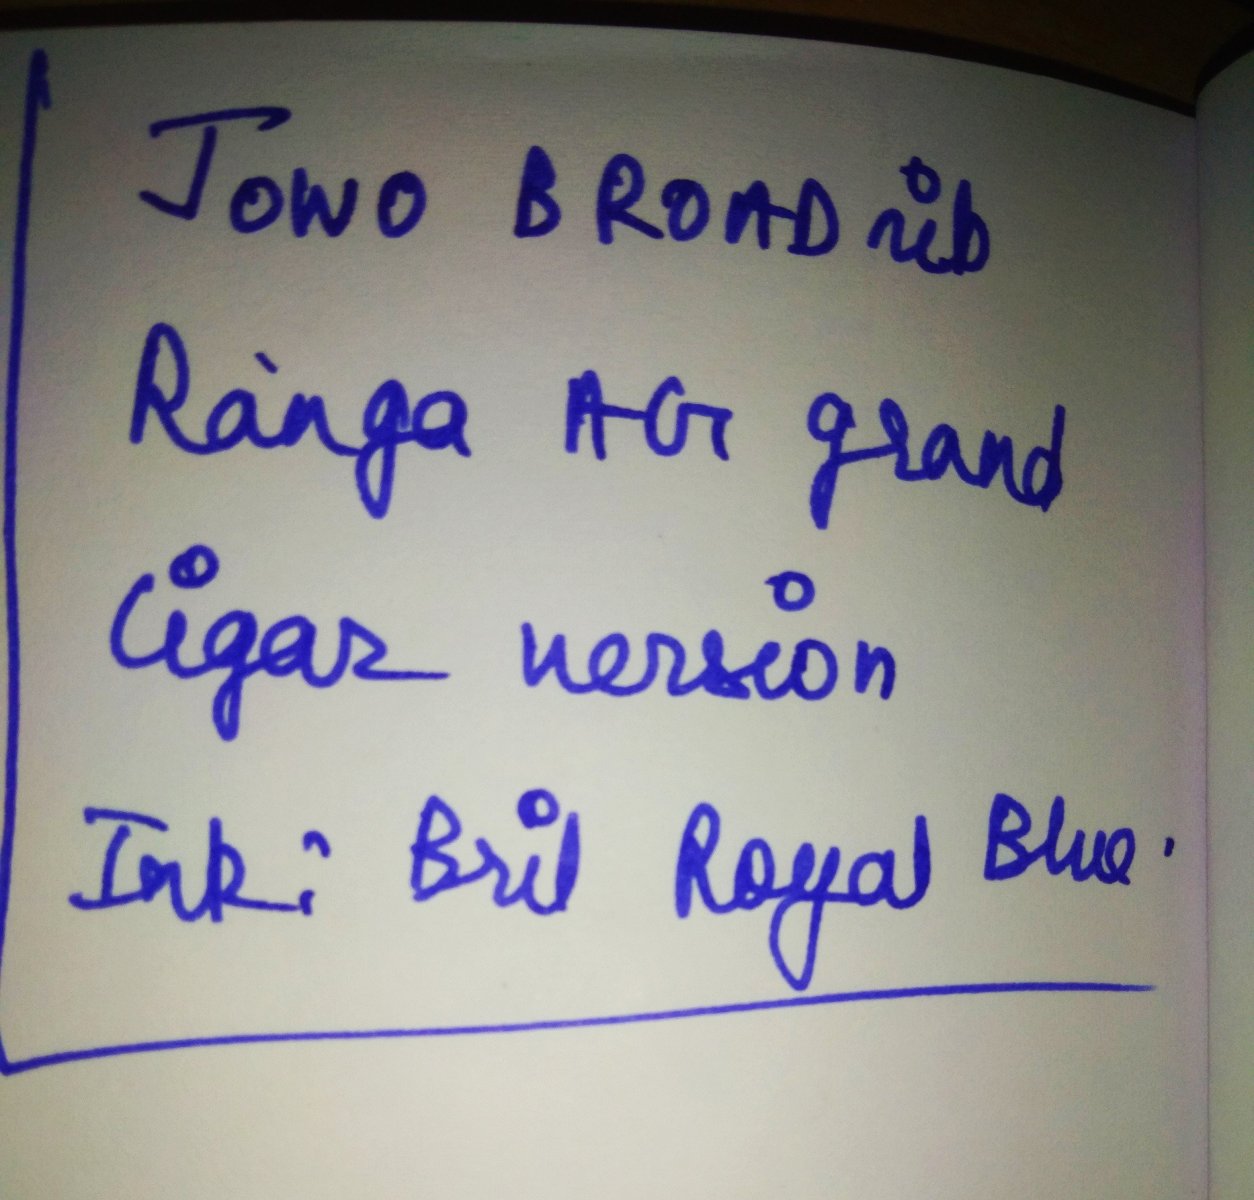 Jowo BROAD nib
Ranga AG grand
Cigar version
Ink: Bril Royal Blue.